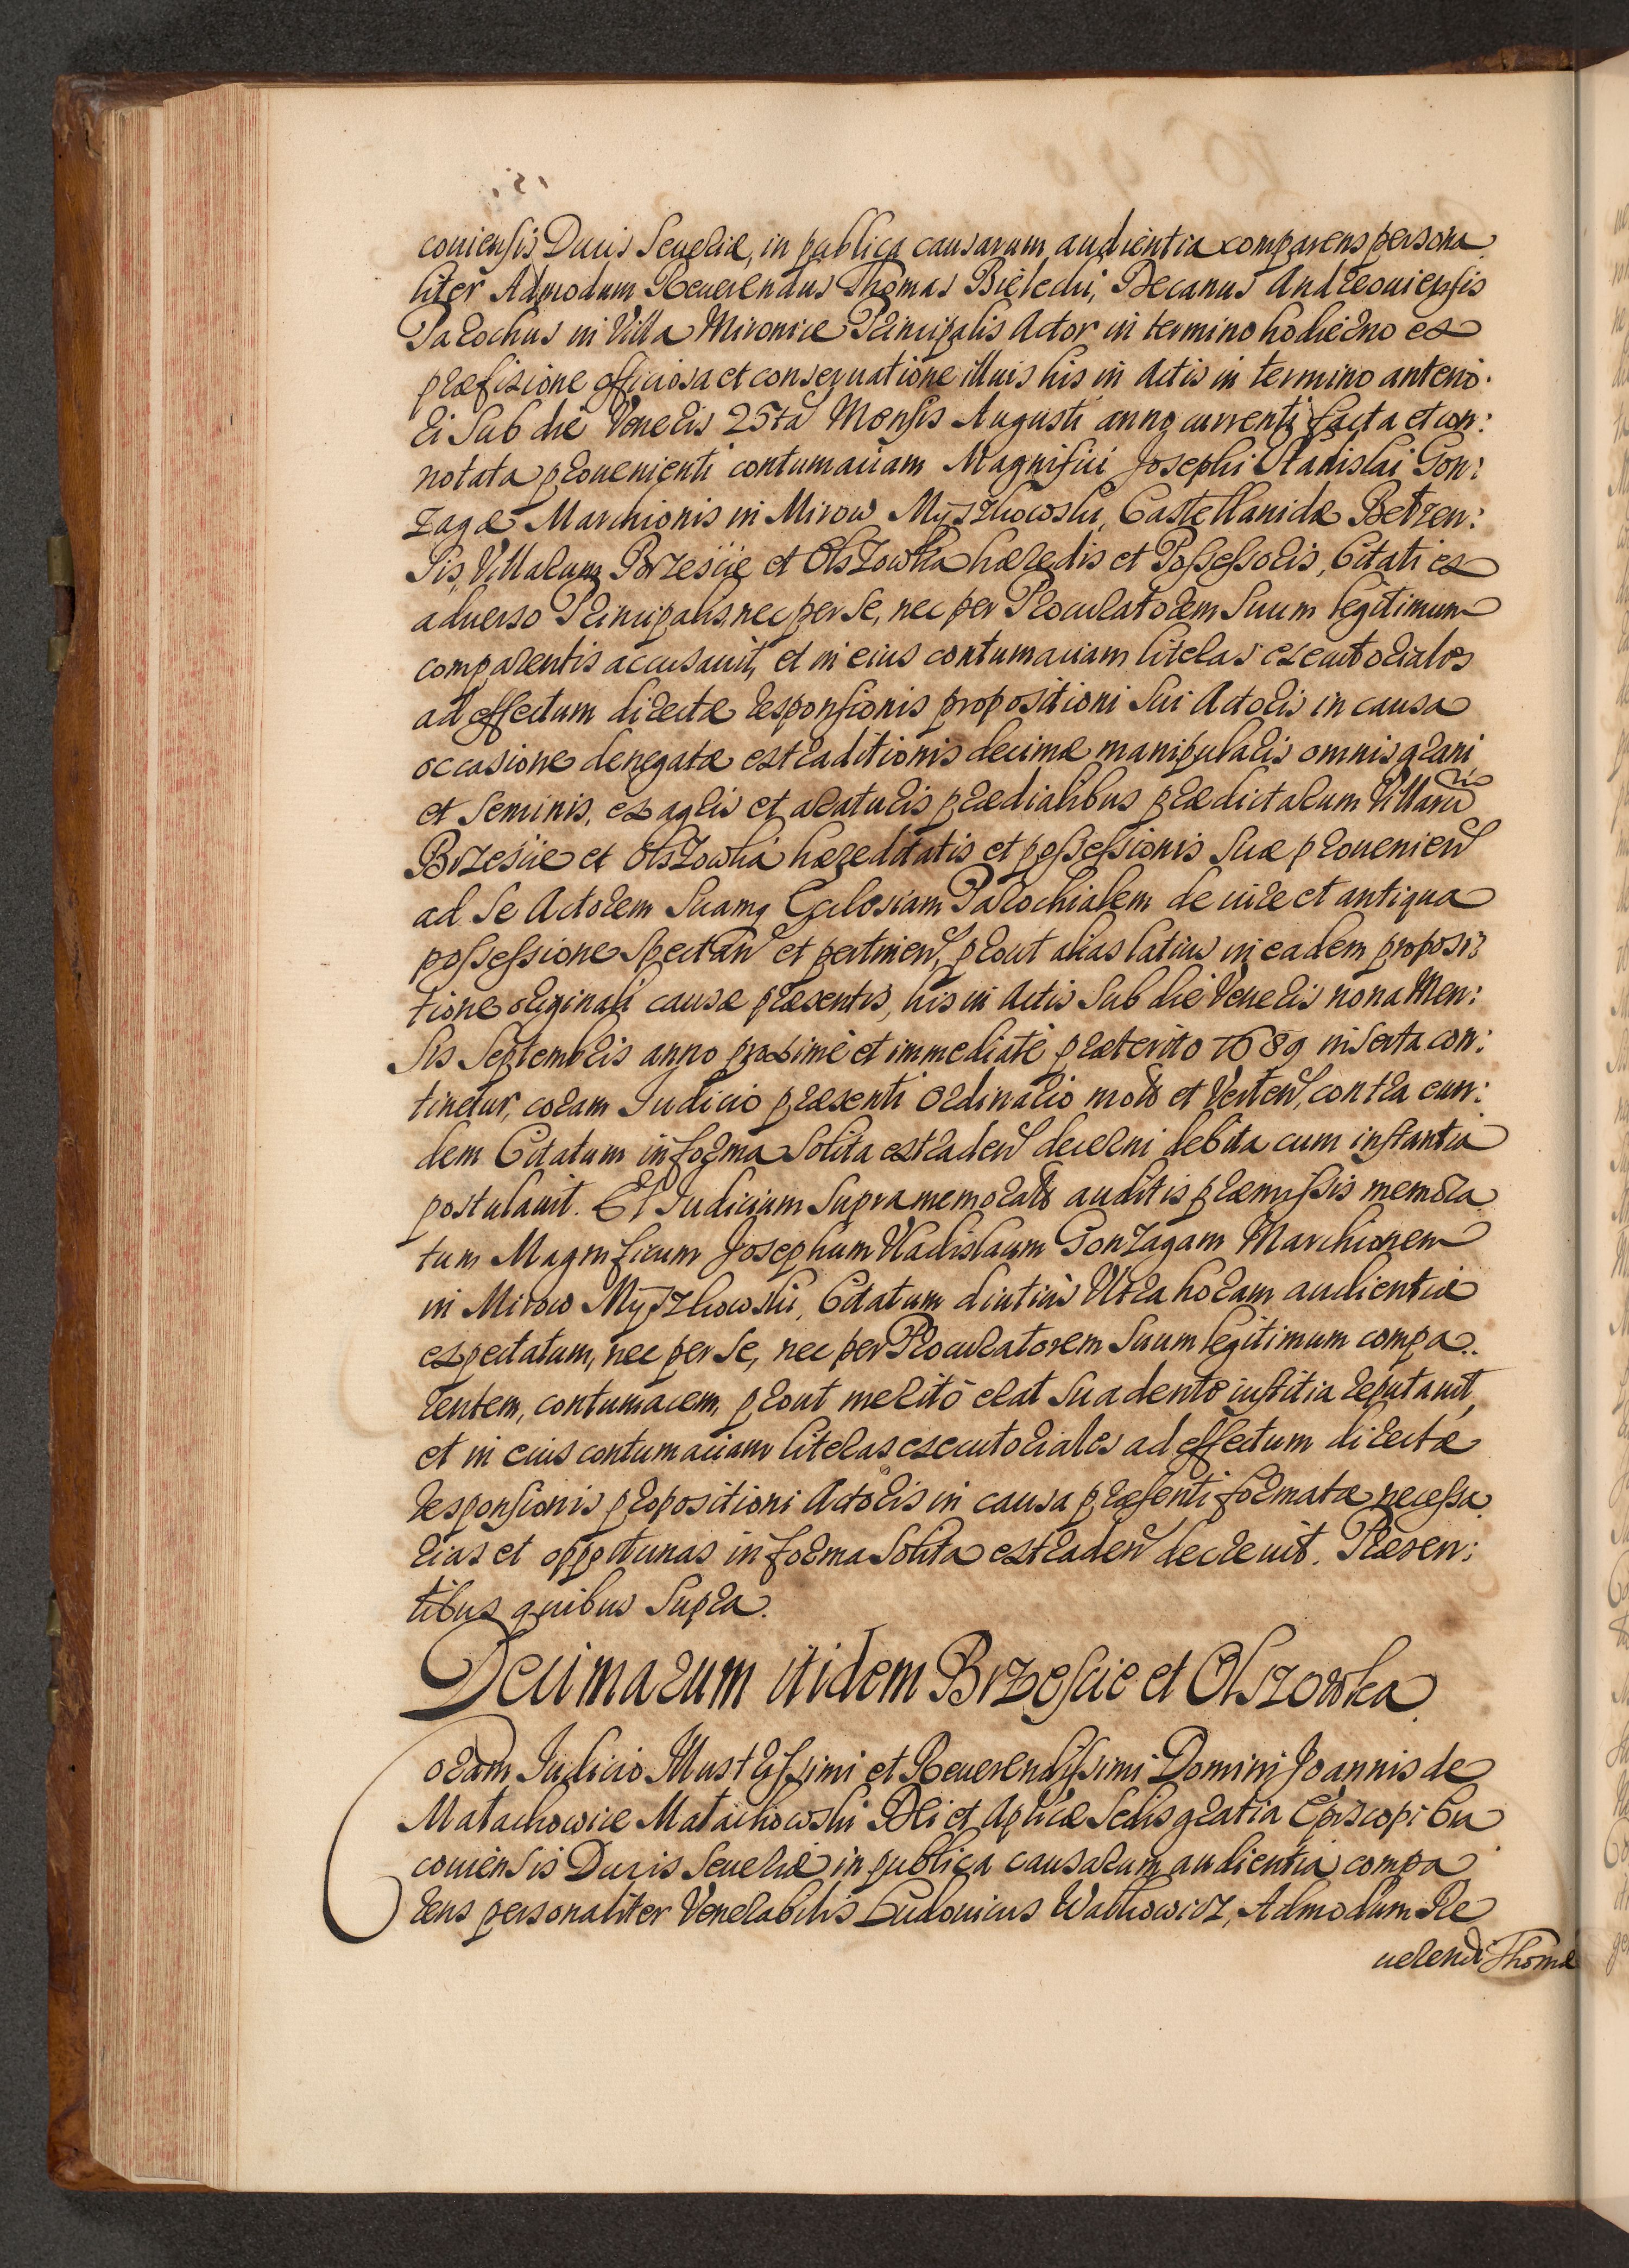 couiensis Ducis Seueriæ, in publica causarum audientia comparens persona
liter Admodum Reuerendus Thomas Bielecki, Decanus Andreouiensis
Parochus in Villa Mironice Principalis Actor in termino hodierno ex
præfixione officiosa et conseruatione illius his in Actis in termino anterio:
ri Sub die Veneris 25ta Mensis Augusti anno currenti facta et con:
notata proueniente contumaciam Magnifici Josephi Vladislai Gon:
zagæ Marchionis in Mirow Myszkowski, Castellanidæ Betzen:
sis, Villarum Brzescie et Olszowka hæredis et Possessoris, Citati ex
aduerso Principalis, nec per se, nec per Procuratorem Suum legitimum
comparentis accusauit, et in eius contumaciam literas executoriales
ad effectum directæ responsionis propositioni Sui Actoris in causa
occasione denegatæ extraditionis decimæ manipularis omnis grani
et Seminis, ex agris et araturis prædialibus prædictarum Villarũ
Brzescie et Olszowka hæreditatis et possessionis Suæ prouenien
ad Se Actorem Suamq Ecclesiam Parochialem de iure et antiqua
possessione Spectan et pertinen, prout alias latius in eadem proposi:
tione originali causæ præsentis, his in Actis Sub die Veneris nona Men:
sis Septembris anno proxime et immediate præterito 1689 inserta con:
tinetur, coram Iudicio præsenti Ordinario mota et Verten, contra eun:
dem Citatum in forma Solita extraden decerni debita cum instantia
postulauit. Et Iudicium Supramemorata auditis præmissis memora
tum Magnificum Josephum Vladislaum Gonzagam Marchionem
in Mirow Myszkowski, Citatum diutius Vltra horam audientiæ
expectatum, nec per se, nec per Procuratorem Suum legitimum compa:
rentem, contumacem, prout merito erat Suadente iustitia reputauit,
et in eius contumaciam literas executoriales ad effectum directæ
responsionis propositioni Actoris in causa præsenti formatæ necessa
rias et opportunas in forma Solita extraden decreuit. Præsen:
tibus quibus Supra.
Decimarum itidem Brzescie et Olszowka
Coram Iudicio Illustrissimi et Reuerendissimi Domini Joannis de
Małachowice Małachowski Dei et Aplicæ Sedis gratia Episcopi Cra
couiensis Ducis Seueriæ in publica causarum audientia compa
rens personaliter Venerabilis Ludouicus Walkowicz, Admodum Re
uerendi Thomæ